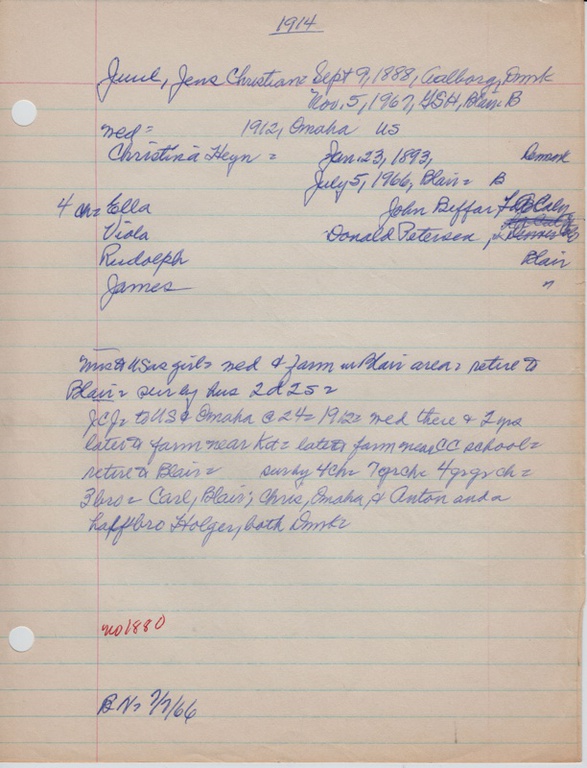 1914
Juul, Jens Christian = Sept 9, 1888, Aalborg, Dmrk
Nov. 5, 1967, GSH, Blair B
wed = 1912, Omaha US
Christina Heyn = Jan. 23, 1893, Denmark
July 5, 1966, Blair = B
4 ch = Ella John Beffar
Viola Donald Petersen,
Rudolph Blair
James "
Mrs to US as girl = wed & farm in Blair area = retire to
Blair = sur by hus 2d 2s =
JCJ = to US & Omaha @ 24 = 1912 = wed there & 2 yrs
later to farm near Kd = later to farm near CC school =
retire to Blair = sur by 4 ch = 7 grch = 4 grgrch =
3 bro = Carl, Blair; Chris, Omaha, & Anton and a
half bro Holger, both Dmrk =
no 1880
B.N. 7/7/66